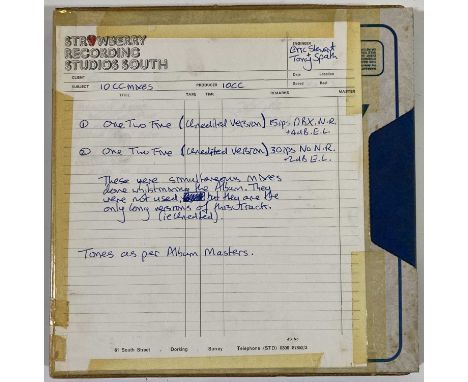 STRAWBERRY
RECORDING
STUDIOS SOUTH
ENGINEER
Eric Stewart
+
Tony Spath
CLIENT
Date Location
SUBJECT 10CC mixes PRODUCER 10CC
Speed Reel
TITLE TAKE TIME REMARKS MASTER
① One Two Five (Unedited Version) 15ips DBX.N.R
+4dB.E.L.
② One Two Five (Unedited Version) 30ips No N.R
+2dB E.L.
These were simultaneous mixes
done whilst mixing the Album. They
were not used, but they are the
only long versions of this Track.
(ie Unedited).
Tones as per Album Masters.
61 South Street Dorking Surrey Telephone (STD) 0306